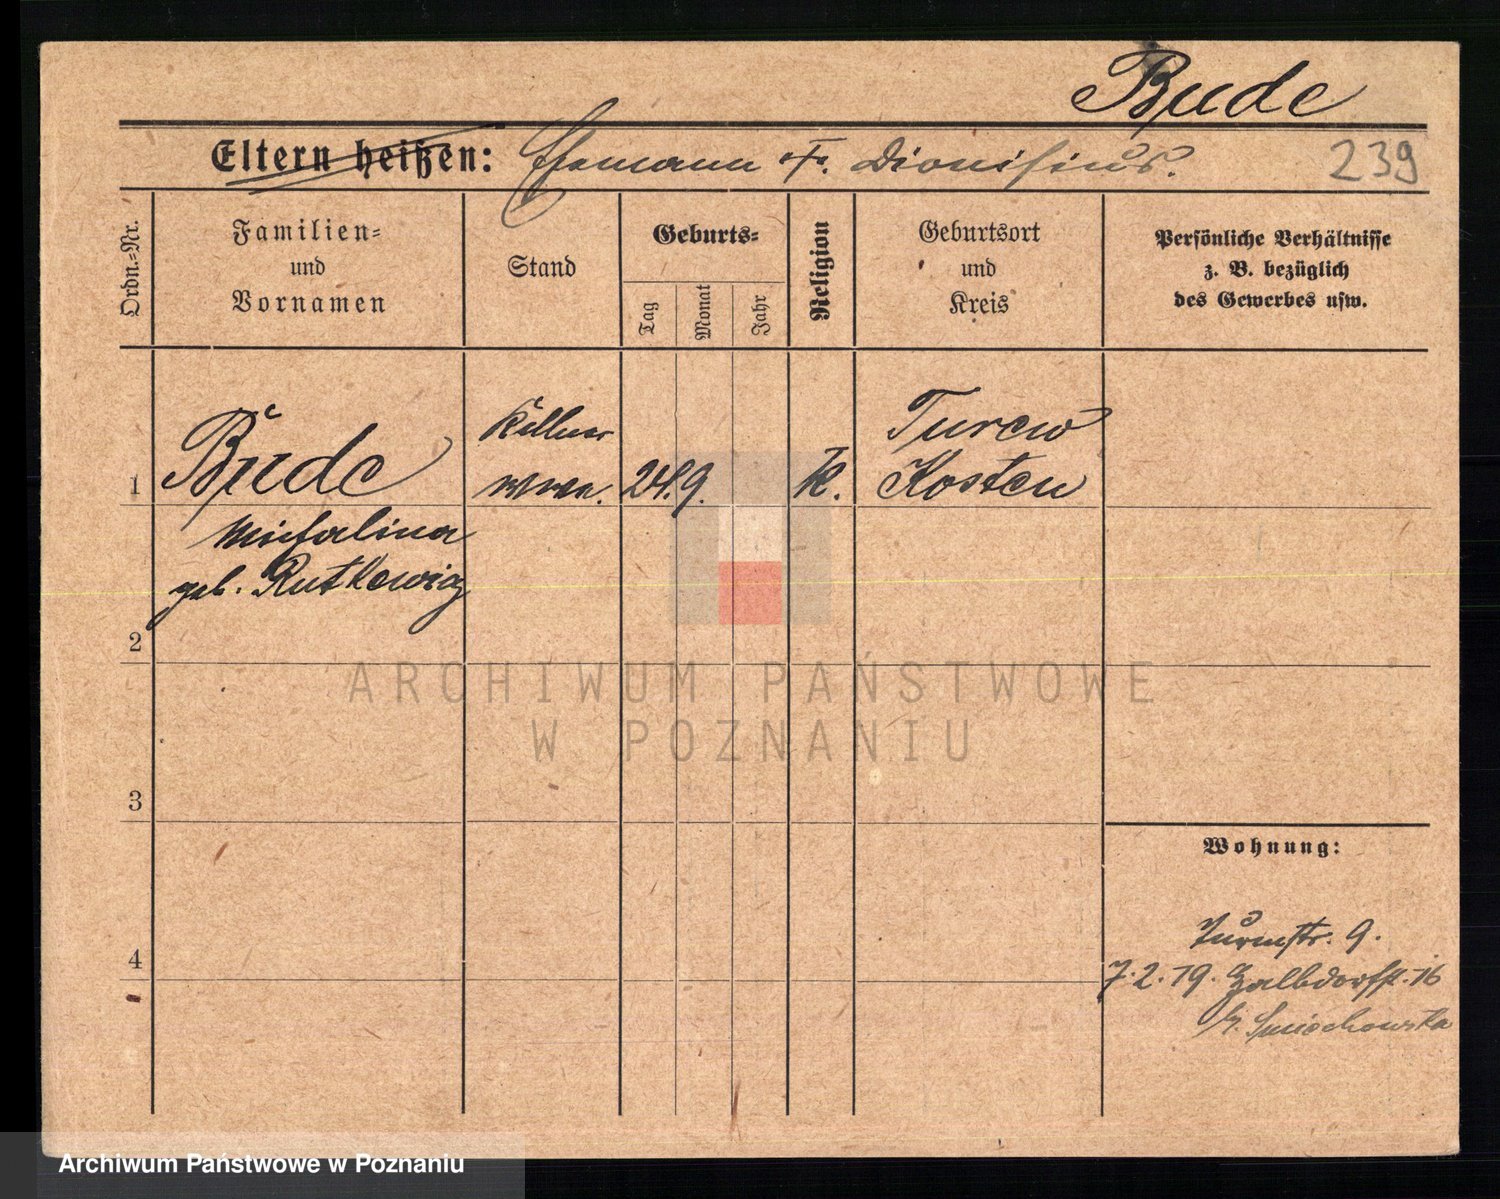 Bude
Eltern heißen: Ehemann F. Dionisius.
239
Ordn.-Nr.
Familien-
und
Vornamen
Stand
Geburts-
Tag
Monat
Jahr
Religion
Geburtsort
und
Kreis
Persönliche Verhältnisse
z. B. bezüglich
des Gewerbes usw.
1
Bude
Kellner
wwe.
24.9.
k.
Turew
Kosten
Michalina
geb. Rutkowicz
2
ARCHIWUM PAŃSTWOWE
W POZNANIU
3
Wohnung:
Turmstr. 9.
4
7.2.19. 16
Archiwum Państwowe w Poznaniu